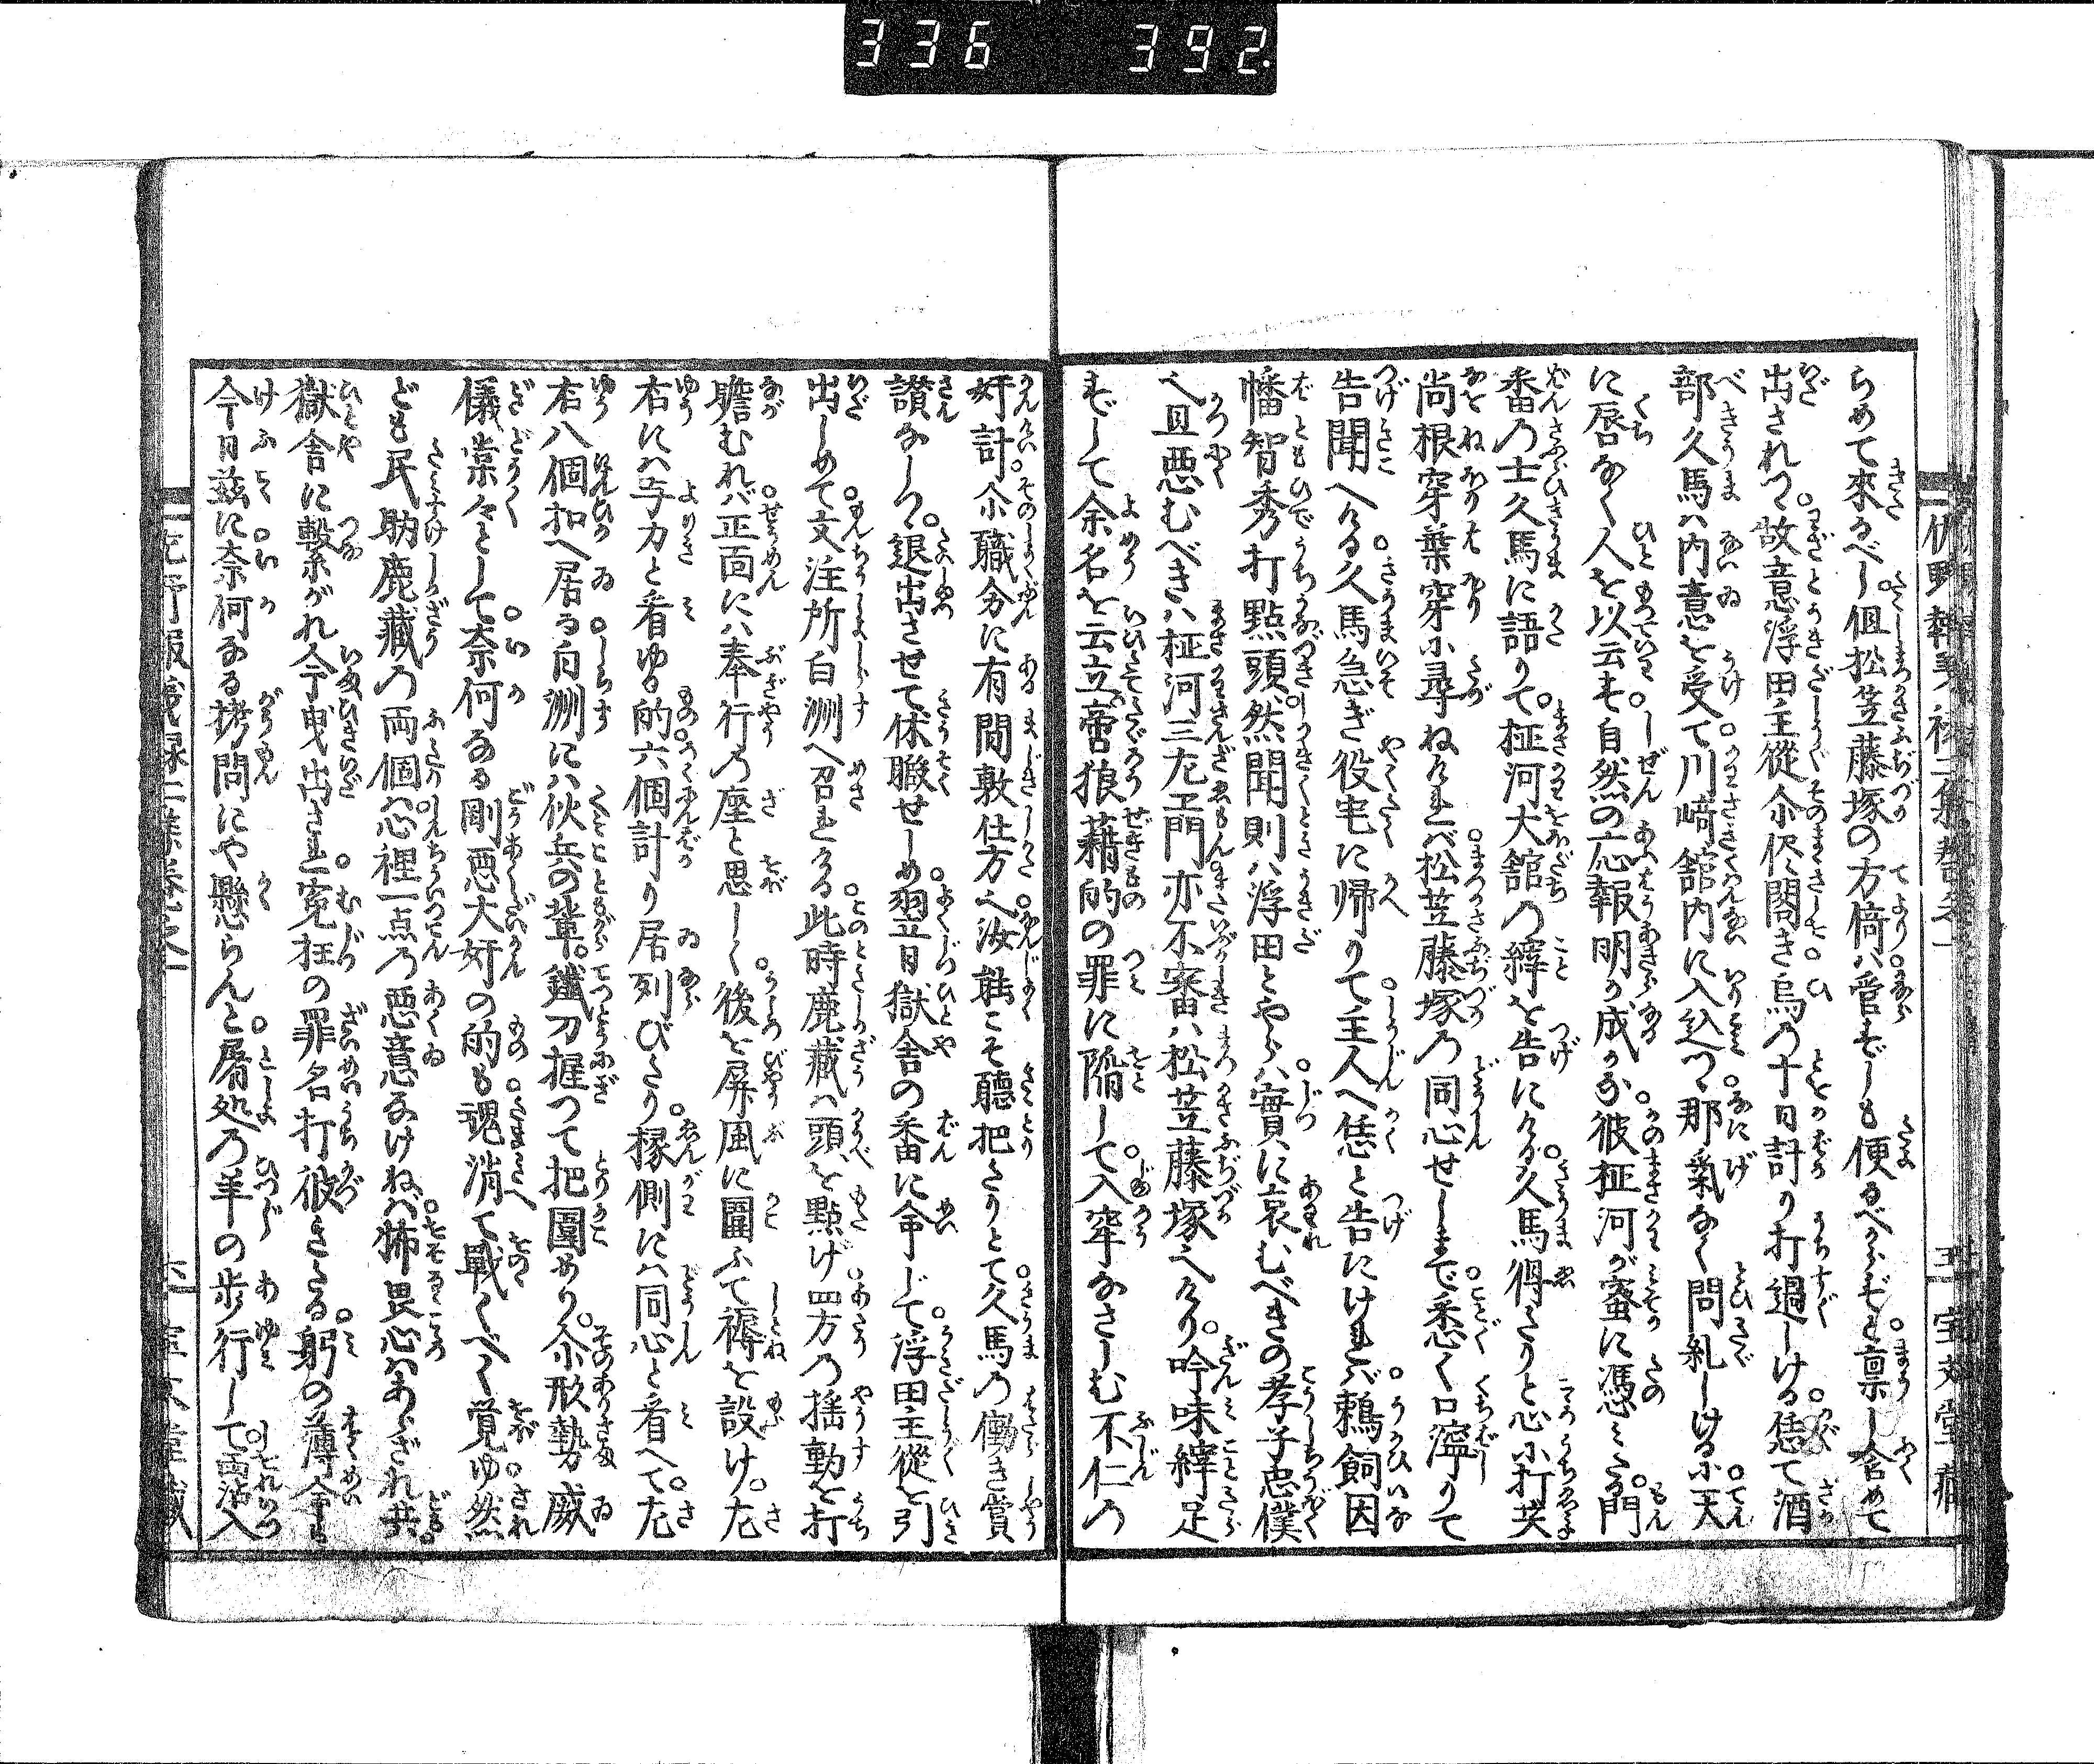 336 392
佐野報義録二集巻之一 五 宝文堂蔵
らめて來るべし。但松笠藤塚の方倚ハ管ずしも便るべからずと禀し含めて
出されつ。故意浮田主從尒侭閣き烏乃十日計り打過しける。恁て酒
部久馬ハ内意を受て川﨑舘内に入込つゝ那氣なく問糺しける小。天
に唇なく人を以云す。自然の应報明か成かな。彼柾河が蜜に馮ミたる。門
番乃士久馬に語りて。柾河大舘乃縡を告にける。久馬得たりと心小打笑
尚根穿葉穿小尋ねけれバ。松笠藤塚乃同心せしまで。悉く口濘りて
告聞へける。久馬急ぎ役宅に帰りて。主人へ恁と告にければ。鵜飼因
幡智秀打點頭。然聞則ハ浮田とやらハ。實に哀むべきの孝子忠僕
へ且悪むべきハ柾河三左エ門。亦不審ハ松笠藤塚へけり。吟味縡足
ずして余名を云立。啻狼藉的の罪に陥して。入牢なさしむ不仁の
奸計。尒職分に有間敷仕方へ。汝能こそ聽把たりとて。久馬乃働き賞
讃なしつゝ。退出させて休職せしめ。翌日獄舎の番に命じて。浮田主從を引
出しめて。文注所白洲へ召れける。此時鹿藏ハ頭を點げ。四方乃揺動を打
瞻むれバ。正面にハ奉行乃座と思しく。後を屏風に圍ふて褥を設け。左
右にハ与力と看ゆる的。六個計り居列びたり。椽側にハ同心と看へて。左
右八個扣へ居る。白洲にハ伙兵の輩。鐵刀握つて把圍めり。尒形勢威
儀棠々として。奈何なる剛悪大奸の的も。魂消て戰くべく覚ゆ。然
ども民助鹿藏乃両個ハ。心裡一点乃悪意なけねバ。怖畏心ハあらざれ共。
獄舎に繋がれ今曳出され。寃枉の罪名打被きたる。躬の薄命も
今日玆に。奈何なる拷問にや懸らんと。屠処乃羊の歩行して。両沾入
佐野報義録二集巻之一 六 宝文堂蔵